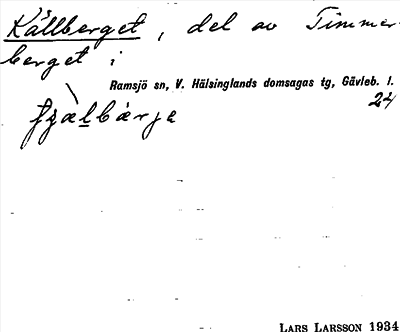 Källberget, del av Timmer-
berget i
Ramsjö sn, V. Hälsinglands domsagas tg, Gävleb. l.
24
LARS LARSSON 1934